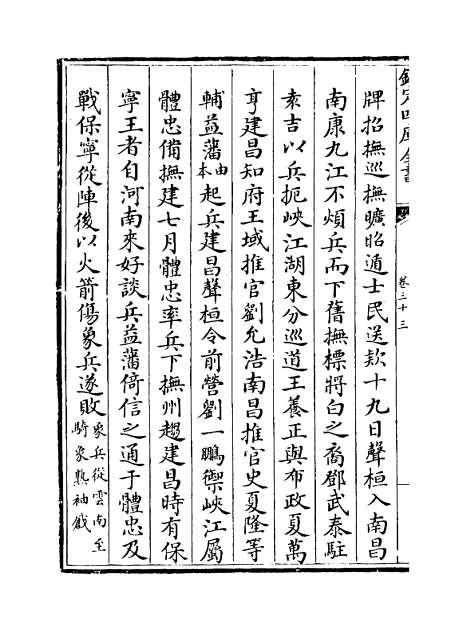 欽定四庫全書
卷三十三
牌招撫巡撫曠昭遁士民送欵十九日聲桓入南昌
南康九江不煩兵而下舊撫標將白之裔鄧武泰駐
袁吉以兵扼峽江湖東分巡道王養正與布政夏萬
亨建昌知府王域推官劉允浩南昌推官史夏隆等
輔益藩由本起兵建昌聲桓令前營劉一鵬禦峽江屬
體忠備撫建七月體忠率兵下撫州趨建昌時有保
寧王者自河南來好談兵益藩倚信之通于體忠及
戰保寧從陣後以火箭傷象兵遂敗象兵從雲南至騎象熟袖戯